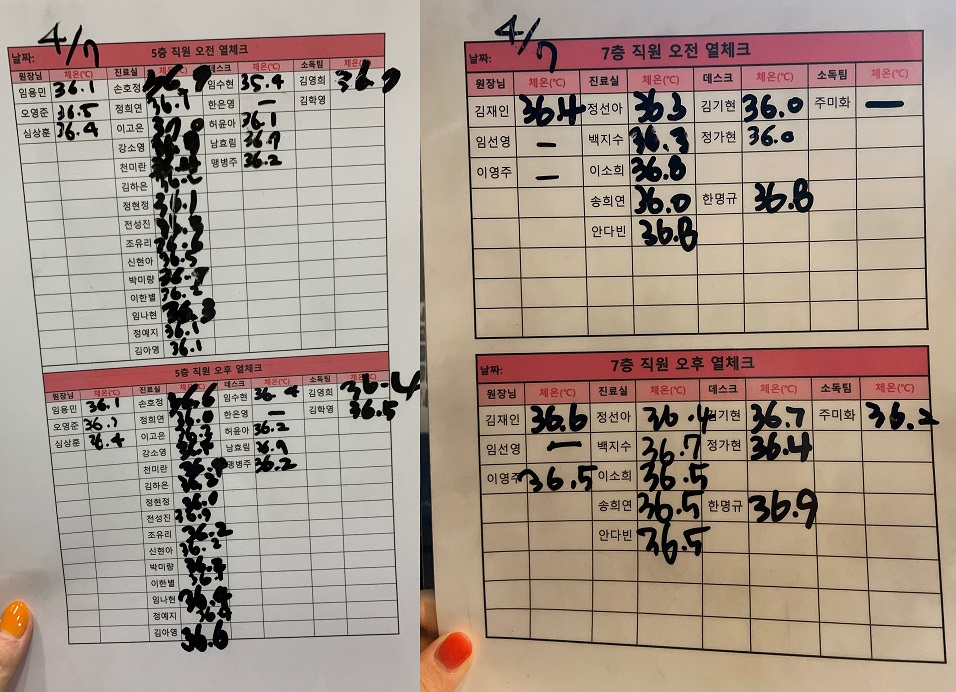 4/7
날짜: 5층 직원 오전 열체크
원장님 체온(℃) 진료실 데스크 체온(℃) 소독팀 체온(℃)
임용민 36.1 손호정 임수현 35.4 김영희
오영준 36.5 정희연 36.7 한은영 - 김학영
심상훈 36.4 이고은 37.0 허윤아 36.1
강소영 남효림 36.9
천미란 맹병주 36.2
김하은
정현정 36.1
전성진
조유리 36.6
신현아 36.5
박미량 36.7
이한별 36.2
임나현 36.3
정예지 36.1
김아영 36.1
날짜: 5층 직원 오후 열체크
원장님 체온(℃) 진료실 체온(℃) 데스크 체온(℃) 소독팀 체온(℃)
임용민 36.1 손호정 36.6 임수현 36.4 김영희 36.4
오영준 정희연 한은영 - 김학영 36.5
심상훈 36.4 이고은 허윤아 36.2
강소영 남효림 36.9
천미란 맹병주 36.2
김하은
정현정 36.0
전성진
조유리 36.2
신현아 36.2
박미량
이한별
임나현 36.4
정예지 36.4
김아영 36.6
4/7
날짜: 7층 직원 오전 열체크
원장님 체온(℃) 진료실 체온(℃) 데스크 체온(℃) 소독팀 체온(℃)
김재인 36.4 정선아 36.3 김기현 36.0 주미화 -
임선영 - 백지수 36.3 정가현 36.0
이영주 - 이소희 36.8
송희연 36.0 한명규 36.8
안다빈 36.8
날짜: 7층 직원 오후 열체크
원장님 체온(℃) 진료실 체온(℃) 데스크 체온(℃) 소독팀 체온(℃)
김재인 36.6 정선아 36.4 김기현 36.7 주미화 36.2
임선영 - 백지수 36.7 정가현 36.4
이영주 36.5 이소희 36.5
송희연 36.5 한명규 36.9
안다빈 36.5